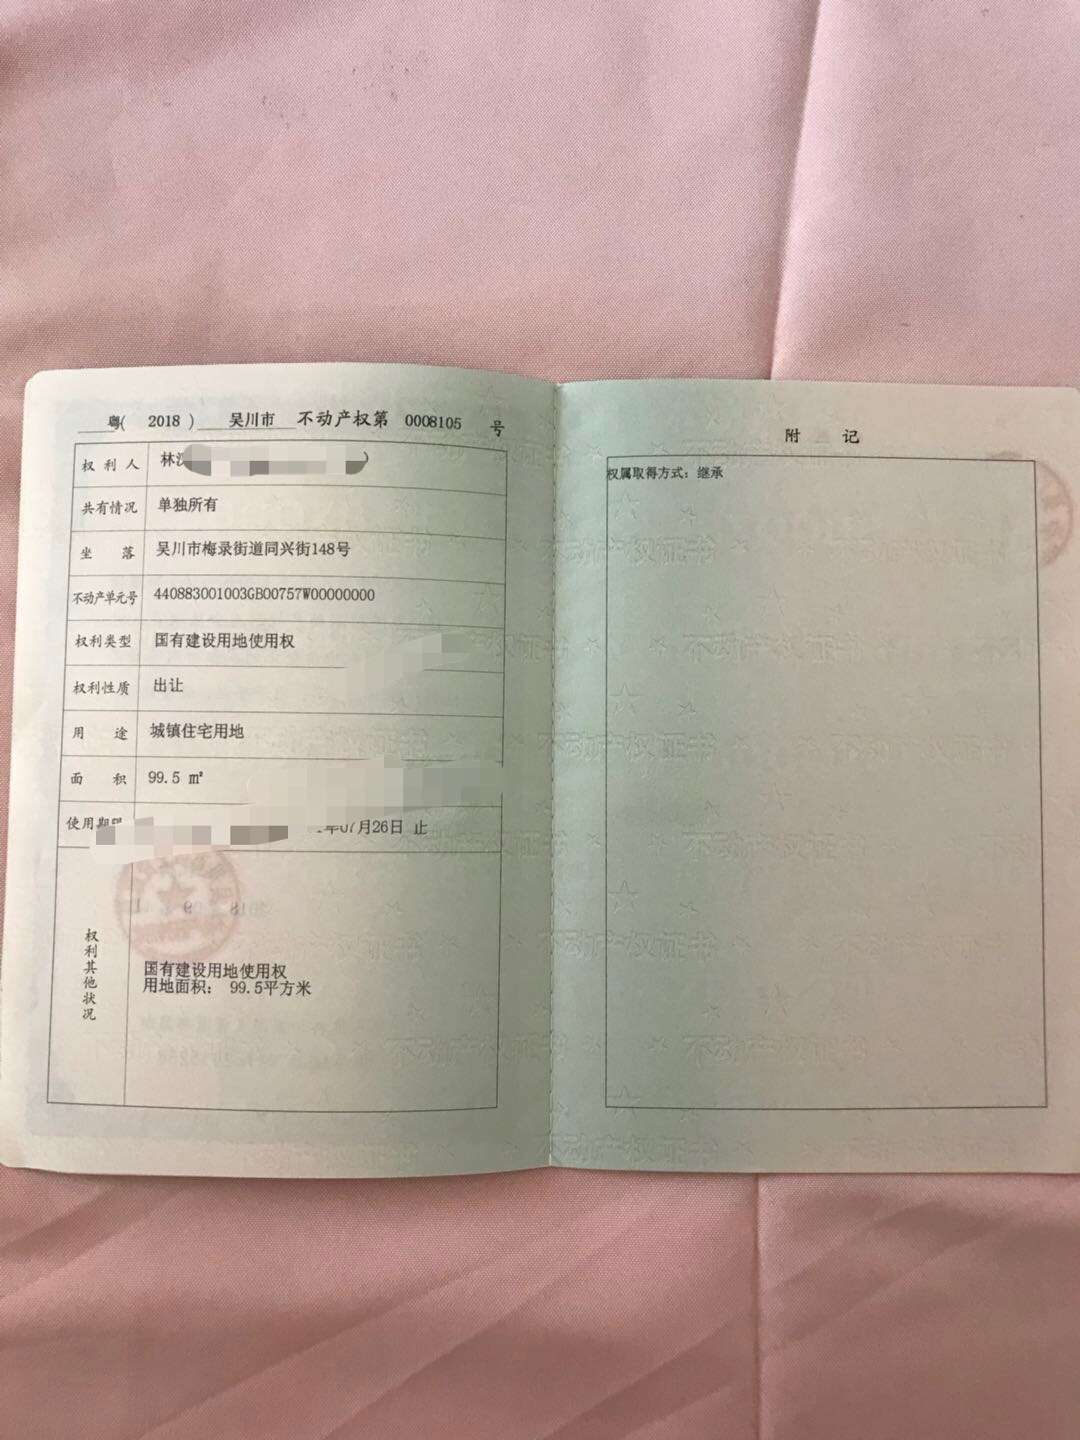 粤( 2018 ) 吴川市 不动产权第 0008105 号
权利人 林
共有情况 单独所有
坐落 吴川市梅录街道同兴街148号
不动产单元号 440883001003GB00757W00000000
权利类型 国有建设用地使用权
权利性质 出让
用途 城镇住宅用地
面积 99.5 ㎡
使用期限 年07月26日 止
权利其他状况
国有建设用地使用权
用地面积： 99.5平方米
附 记
权属取得方式：继承
不动产权证书